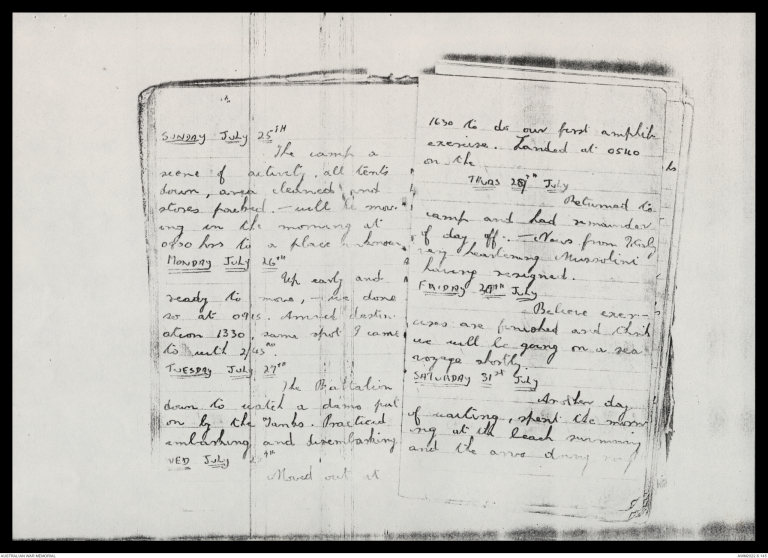 SUNDAY July 25TH
The camp a
scene of activety, all tents
down, area cleaned and
stores packed. - will be mov-
ing in the morning at
0830 hrs to a place unknown
MONDAY July 26TH
Up early and
ready to move, - we done
so at 0915. Arrived destin-
ation 1330, same spot I came
to with 2/43RD.
TUESDAY July 27TH
The Battalion
down to watch a demo put
on by the Tanks. Practiced
embarking and disembarking
WED July
Moved out at
1630 to do our first amphib
exercise. Landed at 0540
on the
THURS 29TH July
Returned to
camp and had remainder
of day off. - News from Italy
very heartening Mussolini
having resigned.
FRIDAY July
Believe exer-
cises are finished and that
we will be going on a sea
voyage shortly.
SATURDAY 31st July
Another day
of waiting, spent the morn
ing at the beach swimming
and the arvo doing
AUSTRALIAN WAR MEMORIAL